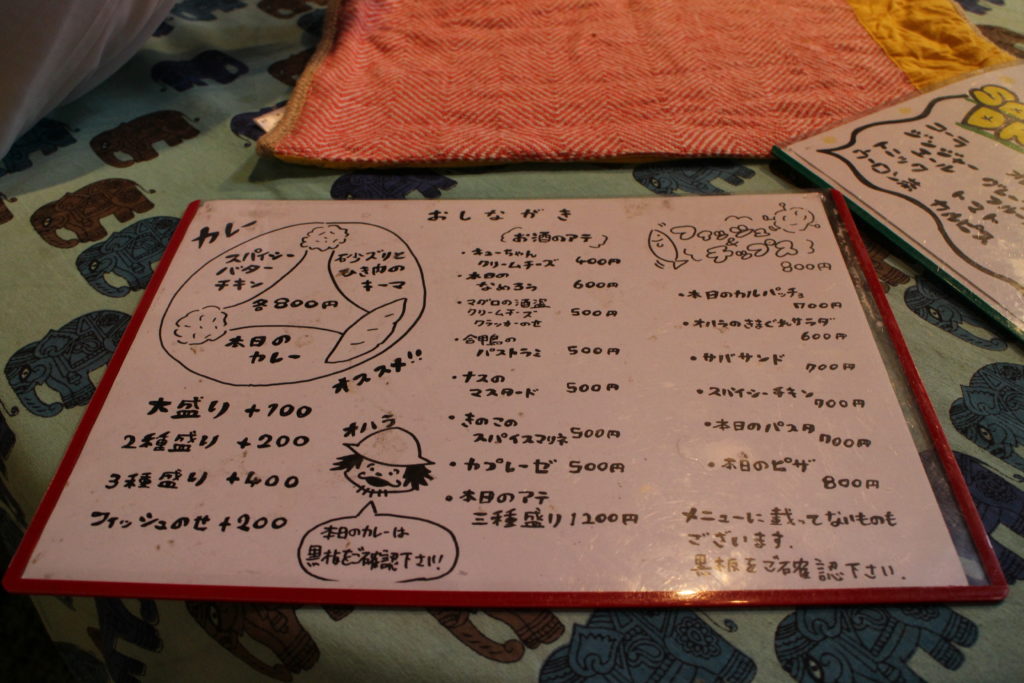 おしながき
カレー
スパイシー
バター
チキン
砂ズリと
ひき肉の
キーマ
各800円
本日の
カレー
オススメ!!
大盛り +100
2種盛り +200
3種盛り +400
フィッシュのせ +200
オハラ
本日のカレーは
黒板をご確認下さい!
お酒のアテ
・キューちゃん
クリームチーズ 400円
・本日の
なめろう 600円
・マグロの酒盗
クリームチーズ
クラッカーのせ 500円
・合鴨の
パストラミ 500円
・ナスの
マスタード 500円
・きのこの
スパイスマリネ 500円
・カプレーゼ 500円
・本日のアテ
三種盛り 1200円
フィッシュ&
チップス
800円
・本日のカルパッチョ
700円
・オハラのきまぐれサラダ
600円
・サバサンド
700円
・スパイシーチキン
700円
・本日のパスタ
700円
・本日のピザ
800円
メニューに載ってないものも
ございます.
黒板をご確認下さい.
コーラ
ジンジャー
エール
トニック
ウーロン茶
トマト
カルピス